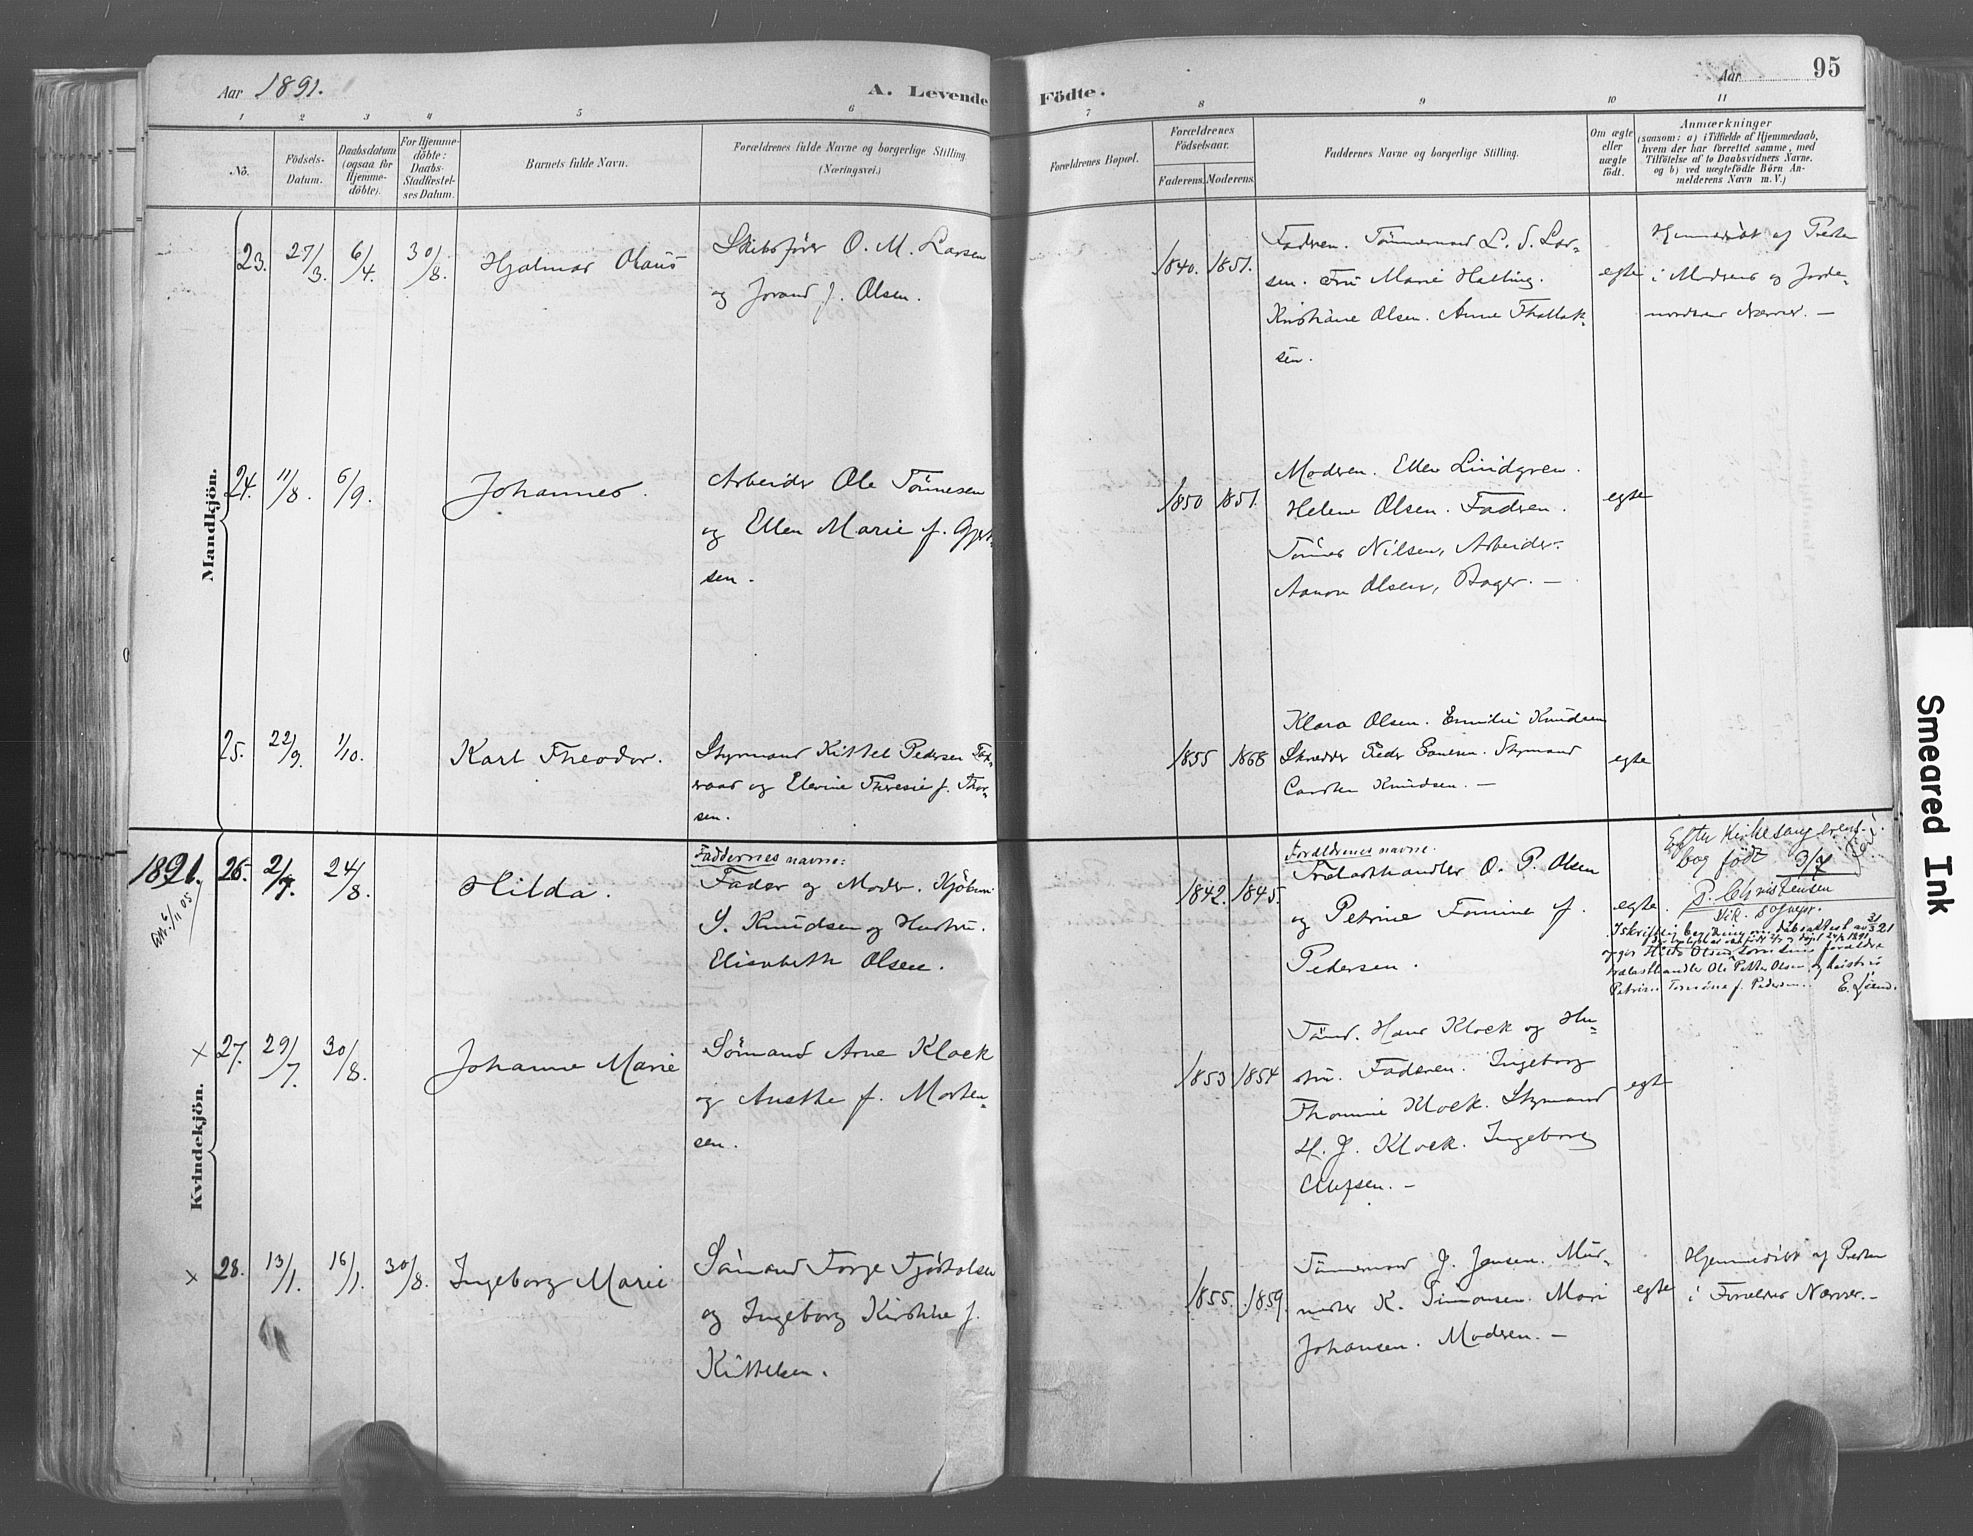 Aar 1891.
A. Levende Födte.
Aar
95
1 2 3 4 5 6 7 8 9 10 11
No.
Födsels-
Datum.
Daabsdatum
(ogsaa for
Hjemme-
döbte).
For Hjemme-
döbte:
Daabs-
Stadfæstel-
ses Datum.
Barnets fulde Navn.
Forældrenes fulde Navne og borgerlige Stilling
(Næringsvei.)
Forældrenes Bopæl.
Forældrenes
Födselsaar.
Faderens. Moderens.
Faddernes Navne og borgerlige Stilling.
Om ægte
eller
uægte
födt.
Anmærkninger
(saasom: a) i Tilfælde af Hjemmedaab,
hvem der har forrettet samme, med
Tilföielse af to Daabsvidners Navne.
og b) ved uægtefödte Börn An-
melderens Navn m.V.)
Mandkjön.
23. 27/3. 6/4. 30/8. Hjalmar Olaus
Skibsförer O. M. Larsen
og Jorand f. Olsen.
1840. 1851.
Fadren. Tömmermand L. S. Lar-
sen. Fru Marie Halling.
Kristiane Olsen. Anne Thallak-
sen.
egte
Hjemmedöbt af Presten
i Modrens og Jorde-
moderens Nærver. —
24. 11/8. 6/9. Johannes.
Arbeider Ole Tönnesen
og Ellen Marie f. Gjert-
sen.
1850 1851.
Modren. Ellen Lindgren.
Helene Olsen. Fadren.
Tönnes Nilsen, Arbeider.
Aanon Olsen, Bager. —
egte
25. 22/9. 1/10. Karl Theodor.
Styrmand Kittel Pedersen
og Elevine Theresie f. Thor-
sen.
1855 1868
Klara Olsen. Emilie Knudsen
Skredder Peder Styrmand
Carsten Knudsen. —
egte
1891.
Att. 6/11 05
Kvindekjön.
26. 2/7. 24/8. Hilda.
Faddernes navne:
Fader og Moder. Kjöbm.
Y. Knudsen og Hustru.
Elisabeth Olsen.
1842. 1845.
Forældrenes navne.
Trælasthandler O. P. Olsen
og Petrine Tomine f.
Pedersen.
egte.
Efter Kirkesangerens
bog födt 9/7
P. Christensen
Vik. sognepr.
I skriftlig begjæring om dåbsattest av 31/3 21
opgir Hilda Olsen forældre
trælasthandler Ole Petter Olsen og hustru
Petrine Tomine f. Pedersen.
27. 29/7. 30/8. Johanne Marie
Sömand Arne Klock
og Anethe f. Morten-
sen.
1853 1854
Tömd. Hans Klock og Hu-
stru. Faderen. Ingeborg
Thomine Klock. Styrmand
H. J. Klock. Ingeborg
Olufsen. —
egte
28. 13/1. 16/1. 30/8. Ingeborg Marie
Sömand Torge Tjöstolsen
og Ingeborg Kirstine f.
Kittelsen.
1855. 1859.
Tömmermand J. Jensen. Mur-
mester K. Simonsen. Mari
Johansen. Modren. —
egte
Hjemmedöbt af Presten
i Foreldres Nærver. —
Smeared Ink